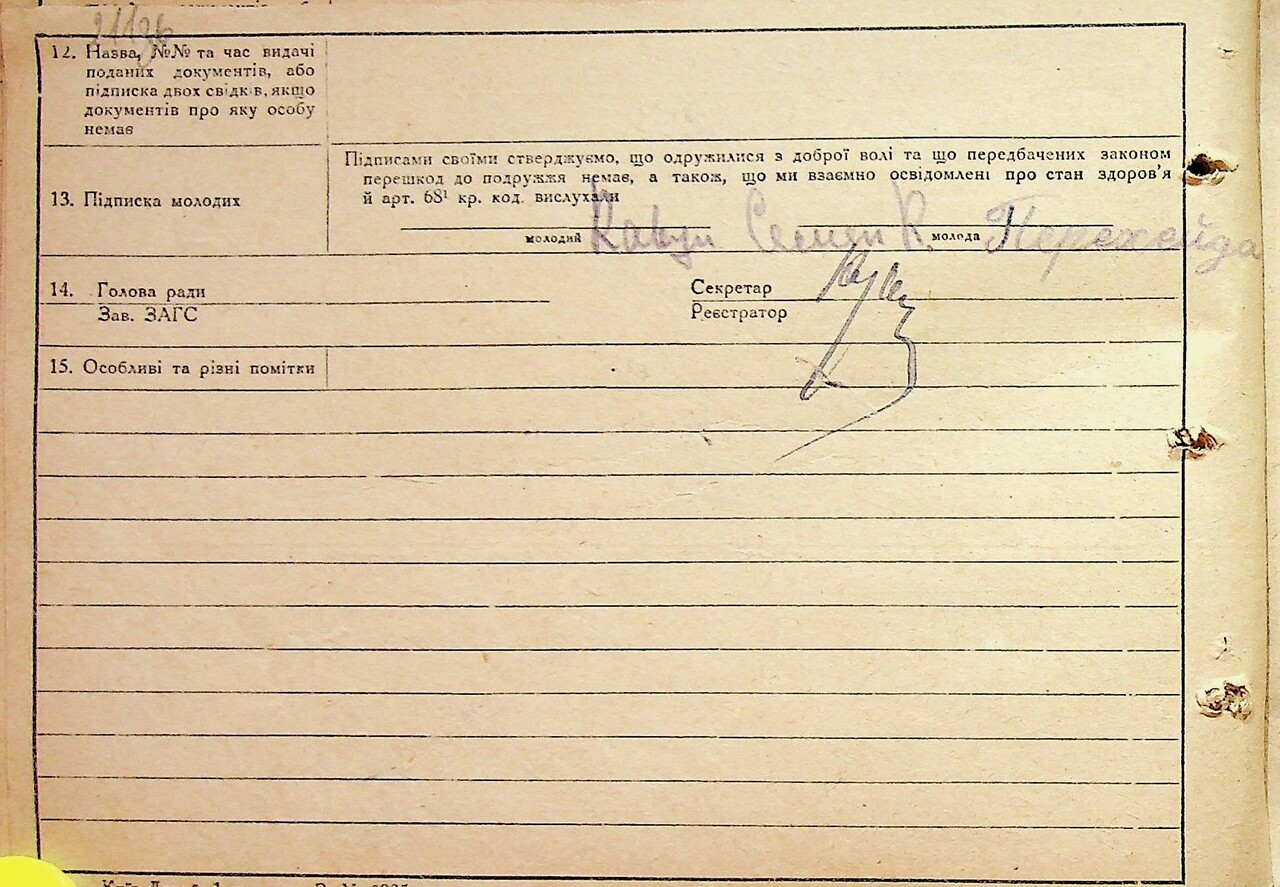 12. Назва, №№ та час видачі
поданих документів, або
підписка двох свідків, якщо
документів про яку особу
немає
Підписами своїми стверджуємо, що одружилися з доброї волі та що передбачених законом
перешкод до подружжя немає, а також, що ми взаємно освідомлені про стан здоров'я
й арт. 68¹ кр. код. вислухали
13. Підписка молодих
молодий Кавун Семен К. молода Перехейда
14. Голова ради Секретар
Зав. ЗАГС Реєстратор
15. Особливі та різні помітки